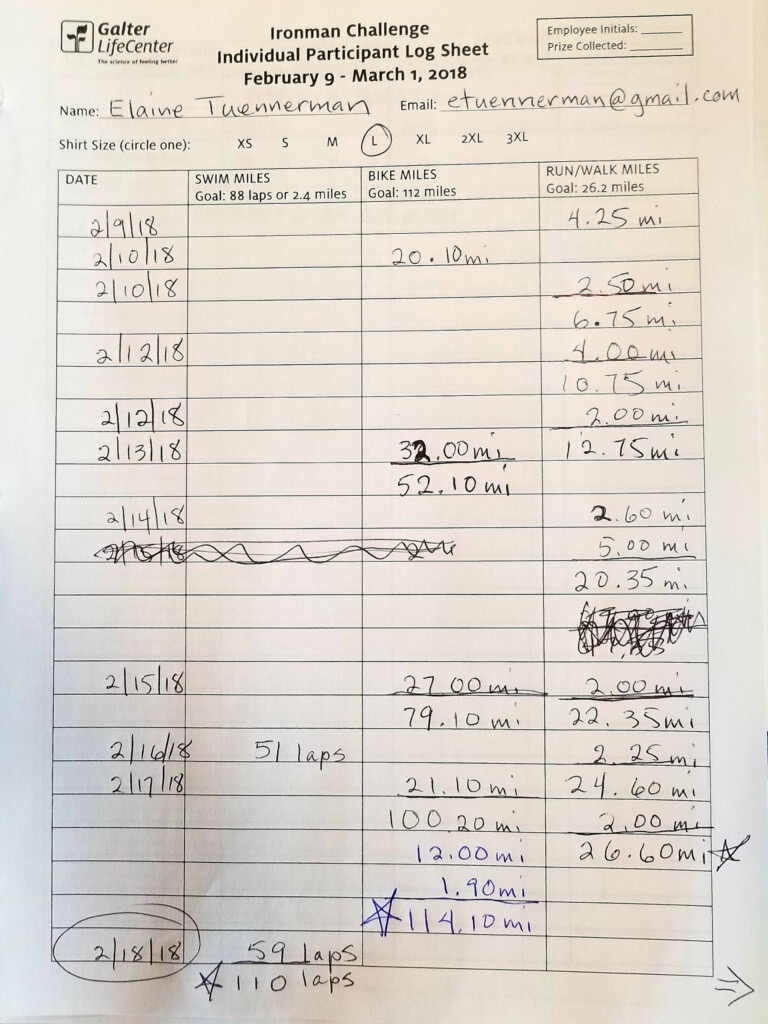 Galter LifeCenter
The science of feeling better
Ironman Challenge
Individual Participant Log Sheet
February 9 - March 1, 2018
Employee Initials: ______
Prize Collected: ______
Name: Elaine Tuennerman Email: etuennerman@gmail.com
Shirt Size (circle one): XS S M L XL 2XL 3XL
DATE SWIM MILES BIKE MILES RUN/WALK MILES
Goal: 88 laps or 2.4 miles Goal: 112 miles Goal: 26.2 miles
2/9/18 4.25 mi
2/10/18 20.10mi
2/10/18 2.50mi
6.75 mi
2/12/18 4.00mi
10.75 mi
2/12/18 2.00mi
2/13/18 32.00mi 12.75mi
52.10mi
2/14/18 2.60 mi
5.00 mi
20.35 mi
2/15/18 27.00mi 2.00mi
79.10 mi 22.35mi
2/16/18 51 laps 2.25mi
2/17/18 21.10mi 24.60 mi
100.20 mi 2.00 mi
12.00mi 26.60mi
1.90mi
114.10 mi
2/18/18 59 laps
110 laps